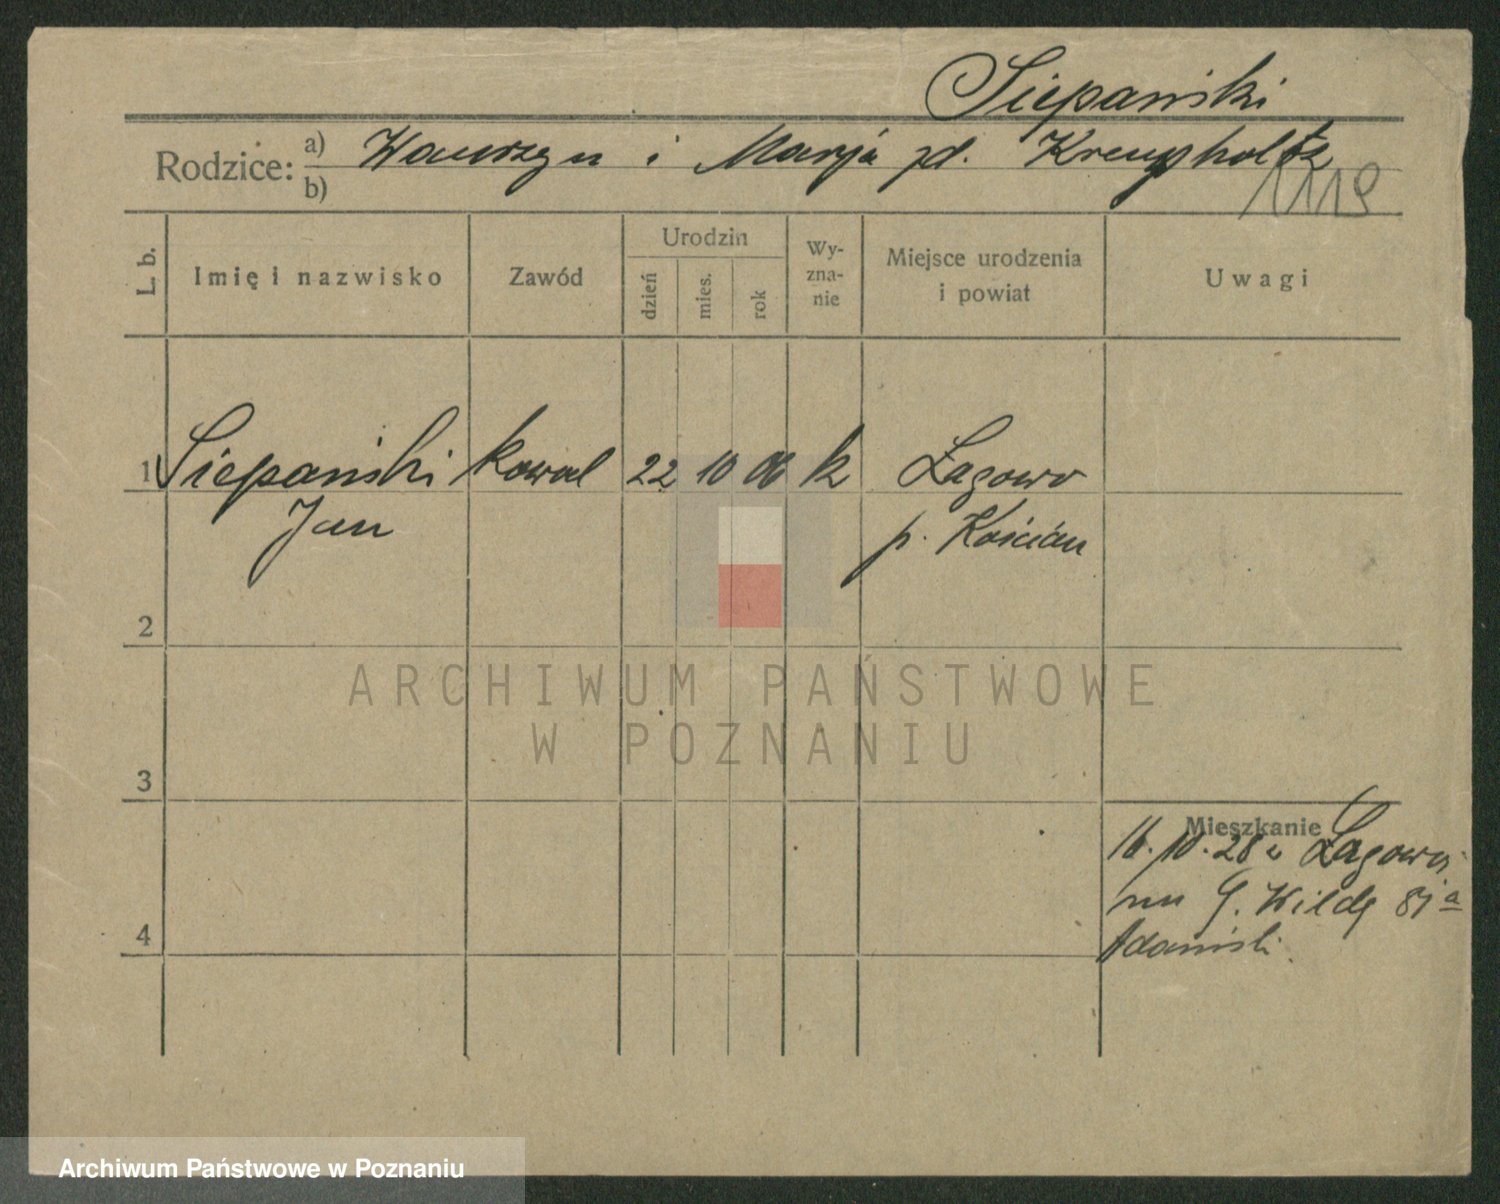 Siepański
Rodzice: a) Wawrzyn i Marja zd. Krempholtz
b)
1119
L. b. Imię i nazwisko Zawód Urodzin dzień mies. rok Wyznanie Miejsce urodzenia i powiat Uwagi
1 Siepański kowal 22 10 06 k Łagowo
Jan p. Kościan
2
ARCHIWUM PAŃSTWOWE
W POZNANIU
3
Mieszkanie
16.10.28 z Łagowa
na G. Wildę 81a
Adamski.
4
Archiwum Państwowe w Poznaniu